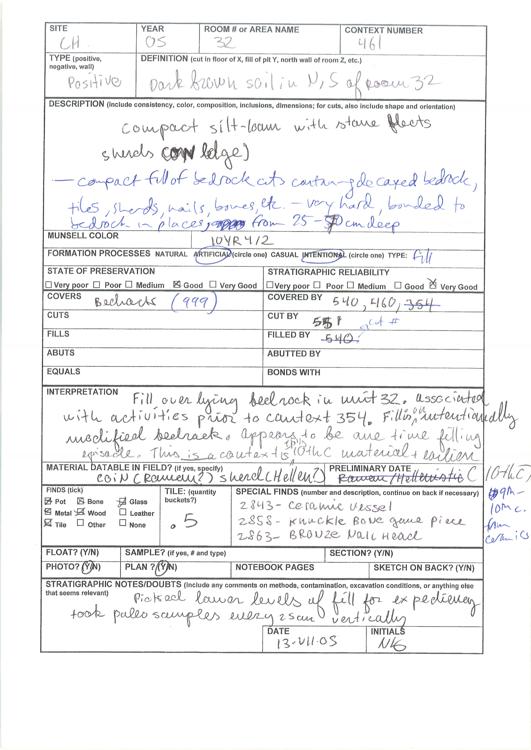 SITE YEAR ROOM # or AREA NAME CONTEXT NUMBER
CH 05 32 461
TYPE (positive, negative, wall) DEFINITION (cut in floor of X, fill of pit Y, north wall of room Z, etc.)
Positive Dark brown soil in N, S of room 32
DESCRIPTION (include consistency, color, composition, inclusions, dimensions; for cuts, also include shape and orientation)
compact silt-loam with stone
sherds
– compact fill of bedrock cuts containing decayed bedrock,
tiles, sherds, nails, bones, etc. – very hard, bonded to
bedrock in places, from 25 - 50 cm deep
MUNSELL COLOR 10YR 4/2
FORMATION PROCESSES NATURAL ARTIFICIAL (circle one) CASUAL INTENTIONAL (circle one) TYPE: fill
STATE OF PRESERVATION STRATIGRAPHIC RELIABILITY
Very poor Poor Medium Good Very Good Very Poor Poor Medium Good Very Good
COVERS Bedrock (999) COVERED BY 540, 460, 354
CUTS CUT BY 551 cut #
FILLS FILLED BY 540
ABUTS ABUTTED BY
EQUALS BONDS WITH
INTERPRETATION Fill overlying bedrock in unit 32. associated
with activities prior to context 354. Fill is on intentionally
modified bedrock. Appears to be one time filling
episode. This is a context is still 10th C material & earlier
MATERIAL DATABLE IN FIELD? (if yes, specify) PRELIMINARY DATE
coin (Roman?) sherd (Hellen?) Roman/Hellenistic C 10th C,
FINDS (tick) TILE: (quantity buckets?) SPECIAL FINDS (number and description, continue on back if necessary)
Pot Bone Glass 2843 - Ceramic vessel
Metal Wood Leather .5 2858 - Knuckle Bone game piece
Tile Other None 2863 - BRONZE Nail Head
10th c.
from
ceramics
FLOAT? (Y/N) SAMPLE? (if yes, # and type) SECTION? (Y/N)
PHOTO? (Y/N) PLAN? (Y/N) NOTEBOOK PAGES SKETCH ON BACK? (Y/N)
STRATIGRAPHIC NOTES/DOUBTS (Include any comments on methods, contamination, excavation conditions, or anything else that seems relevant)
Picked lower levels of fill for expediency
took paleo samples every 25cm vertically
DATE INITIALS
13-VII-05 NG